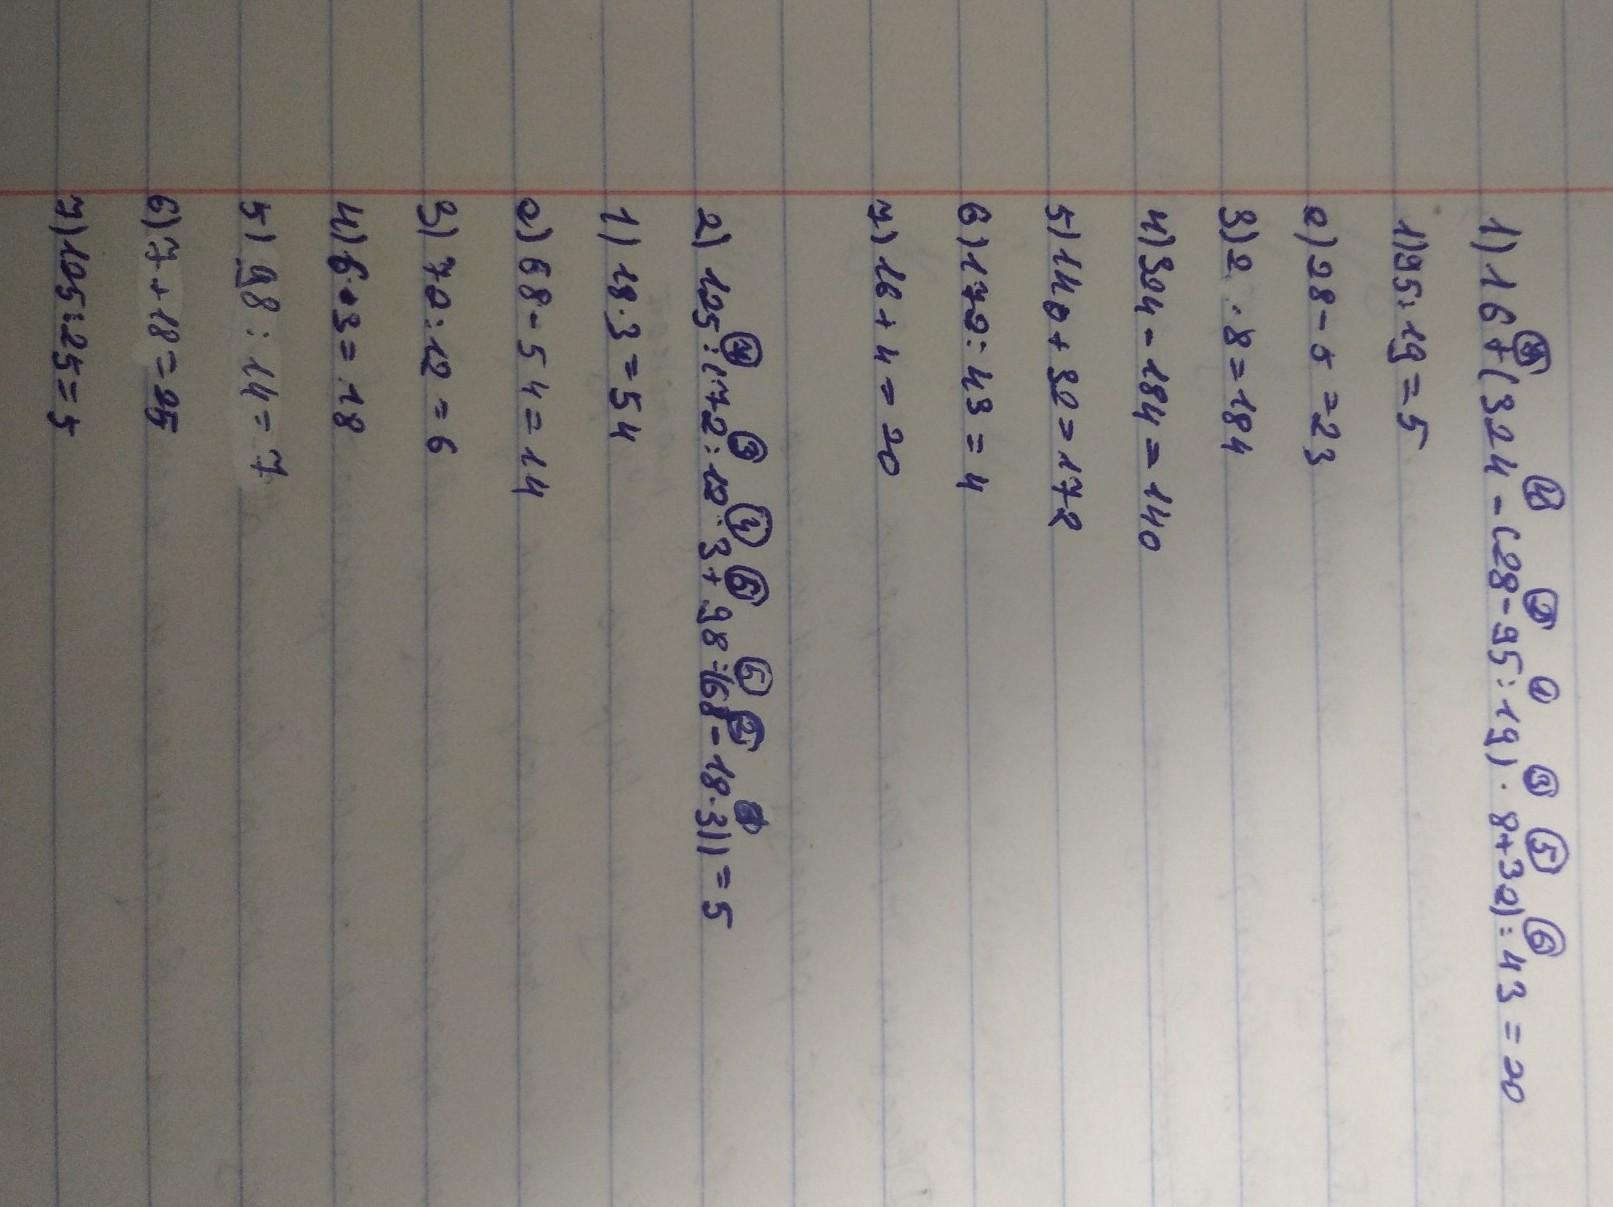 ⑦ ④ ② ① ③ ⑤ ⑥
1) 16+(324-(28-95:19)·8+32):43=20
1) 95:19=5
2) 28-5=23
3) 2 ·8=184
4) 324-184=140
5) 140+32=172
6) 172:43=4
7) 16+4=20
③ ④ ⑥ ⑤ ② ①
2) 125:(72:12·3+98:(68-18·3))=5
1) 18·3=54
2) 68-54=14
3) 72:12=6
4) 6·3=18
5) 98:14=7
6) 7+18=25
7) 125:25=5